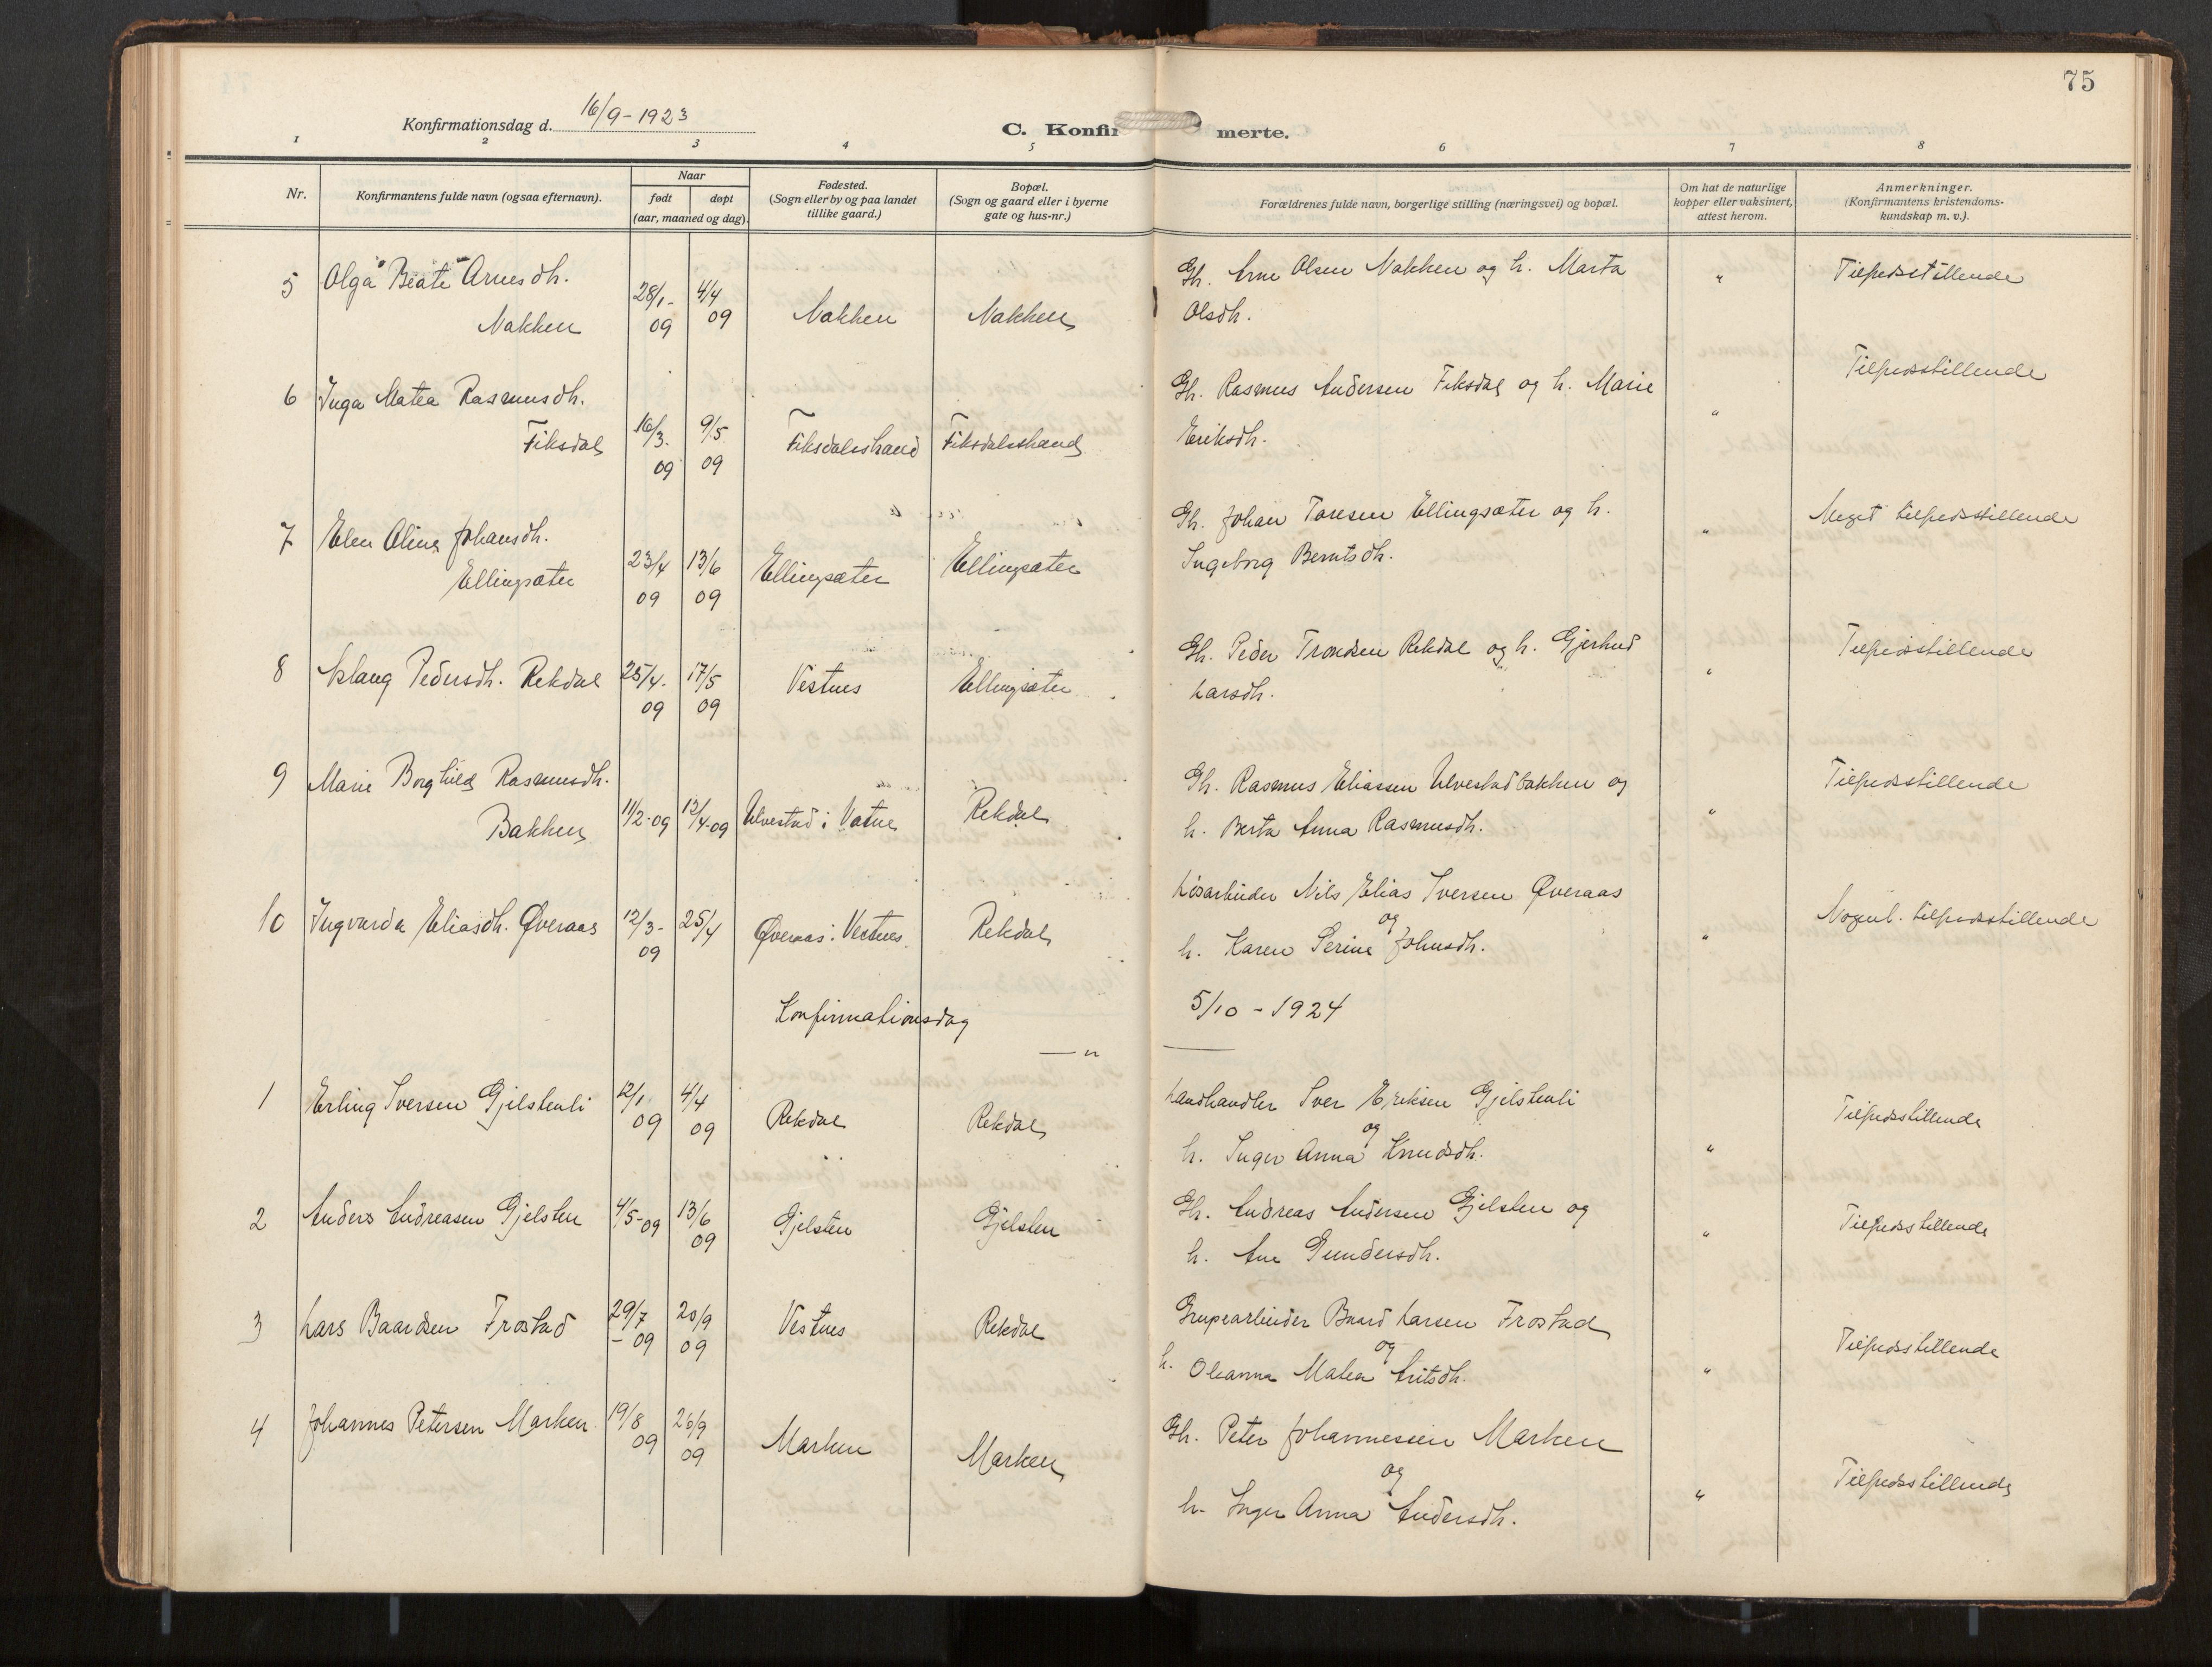 75
Konfirmationsdag d. 16/9-1923
C. Konfir merte.
1 2 3 4 5 6 7 8
Nr.
Konfirmantens fulde navn (ogsaa efternavn).
Naar
født døpt
(aar, maaned og dag).
Fødested.
(Sogn eller by og paa landet
tillike gaard.)
Bopæl.
(Sogn og gaard eller i byerne
gate og hus-nr.)
Forældrenes fulde navn, borgerlige stilling (næringsvei) og bopæl.
Om hat de naturlige
kopper eller vaksinert,
attest herom.
Anmerkninger.
(Konfirmantens kristendoms-
kundskap m. v.).
5 Olga Beate Arnesdh. 28/1- 4/4 Gh. Arne Olsen Nakken og h. Marta " Tilfredsstillende
Nakken 09 09 Nakken Nakken Olsdh.
6 Inga Matea Rasmusdh. Gh. Rasmus Andersen Fiksdal og h. Marie " Tilfredsstillende
Fiksdal 16/3. 9/5 Fiksdalsstrand Fiksdalsstrand Eriksdh.
09 09
7 Elen Oline Johansdh. Gh. Johan Toresen Ellingsæter og h. " Meget tilfredsstillende
Ellingsæter 23/4 13/6 Ellingsæter Ellingsæter Ingeborg Berntsdh.
09 09
8 Aslaug Pedersdh. Rekdal 25/4. 17/5 Vestnes Ellingsæter Gh. Peder Trondsen Rekdal og h. Gjertrud " Tilfredsstillende
09 09 Larsdh.
9 Marie Borghild Rasmusdh. Gh. Rasmus Eliassen Ulvestadbakken og " Tilfredsstillende
Bakken 11/2-09 12/4-09 Ulvestad i Vatne Rekdal h. Berta Anna Rasmusdh.
10 Ingvarda Eliasdh. Øveraas 12/3- 25/4 Øveraas i Vestnes Rekdal Løsarbeider Nils Elias Iversen Øveraas " Nogenl. tilfredsstillende
09 og
h. Karen Serine Johnsdh.
Konfirmationsdag 5/10 - 1924
— "
1 Erling Iversen Gjelstenli 12/1 4/4 Rekdal Rekdal Landhandler Iver Eriksen Gjelstenli " Tilfredsstillende
09 09 og
h. Inger Anna Knudsdh.
2 Anders Andreasen Gjelsten 4/5-09 13/6 Gjelsten Gjelsten Gh. Andreas Andersen Gjelsten og " Tilfredsstillende
09 h. Ane Gundersdh.
3 Lars Baardsen Frostad 29/7 20/9 Vestnes Rekdal Grupearbeider Baard Larsen Frostad " Tilfredsstillende
- 09 09 og
h. Oleanna Matea
4 Johannes Petersen Marken 19/8 26/9 Marken Marken Gh. Peter Johannessen Marken " Tilfredsstillende
09 09 og
h. Inger Anna Andersdh.